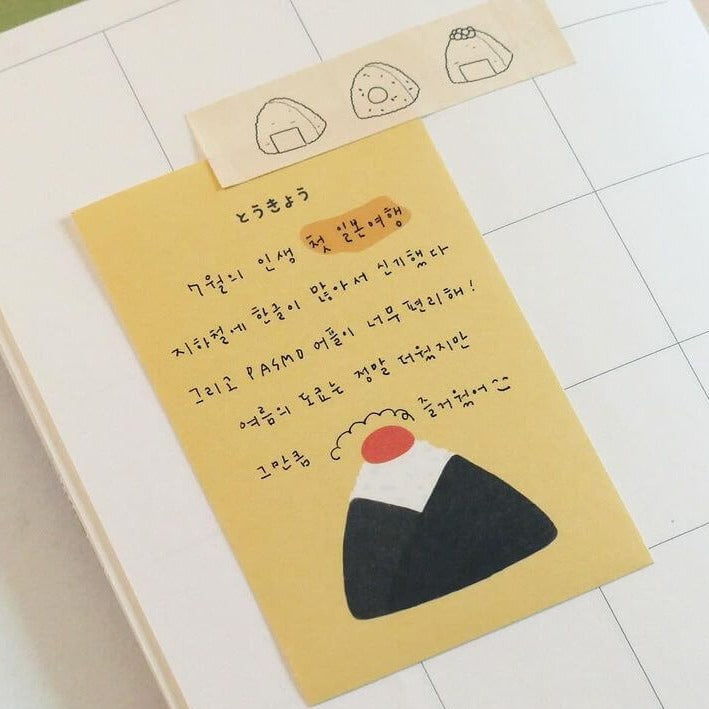 とうきょう
7월의 인생 첫 일본여행
지하철에 한글이 많아서 신기했다
그리고 PASMO 어플이 너무 편리해!
여름의 도쿄는 정말 더웠지만
그만큼 즐거웠어